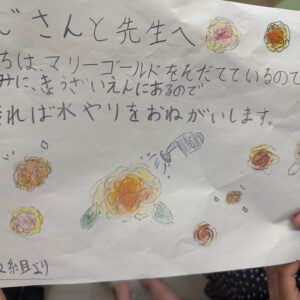 さんと先生へ
ちは、マリーゴールドをそだてているので
みに、きょうざいえんにあるので
れば水やりをおねがいします。
2組より